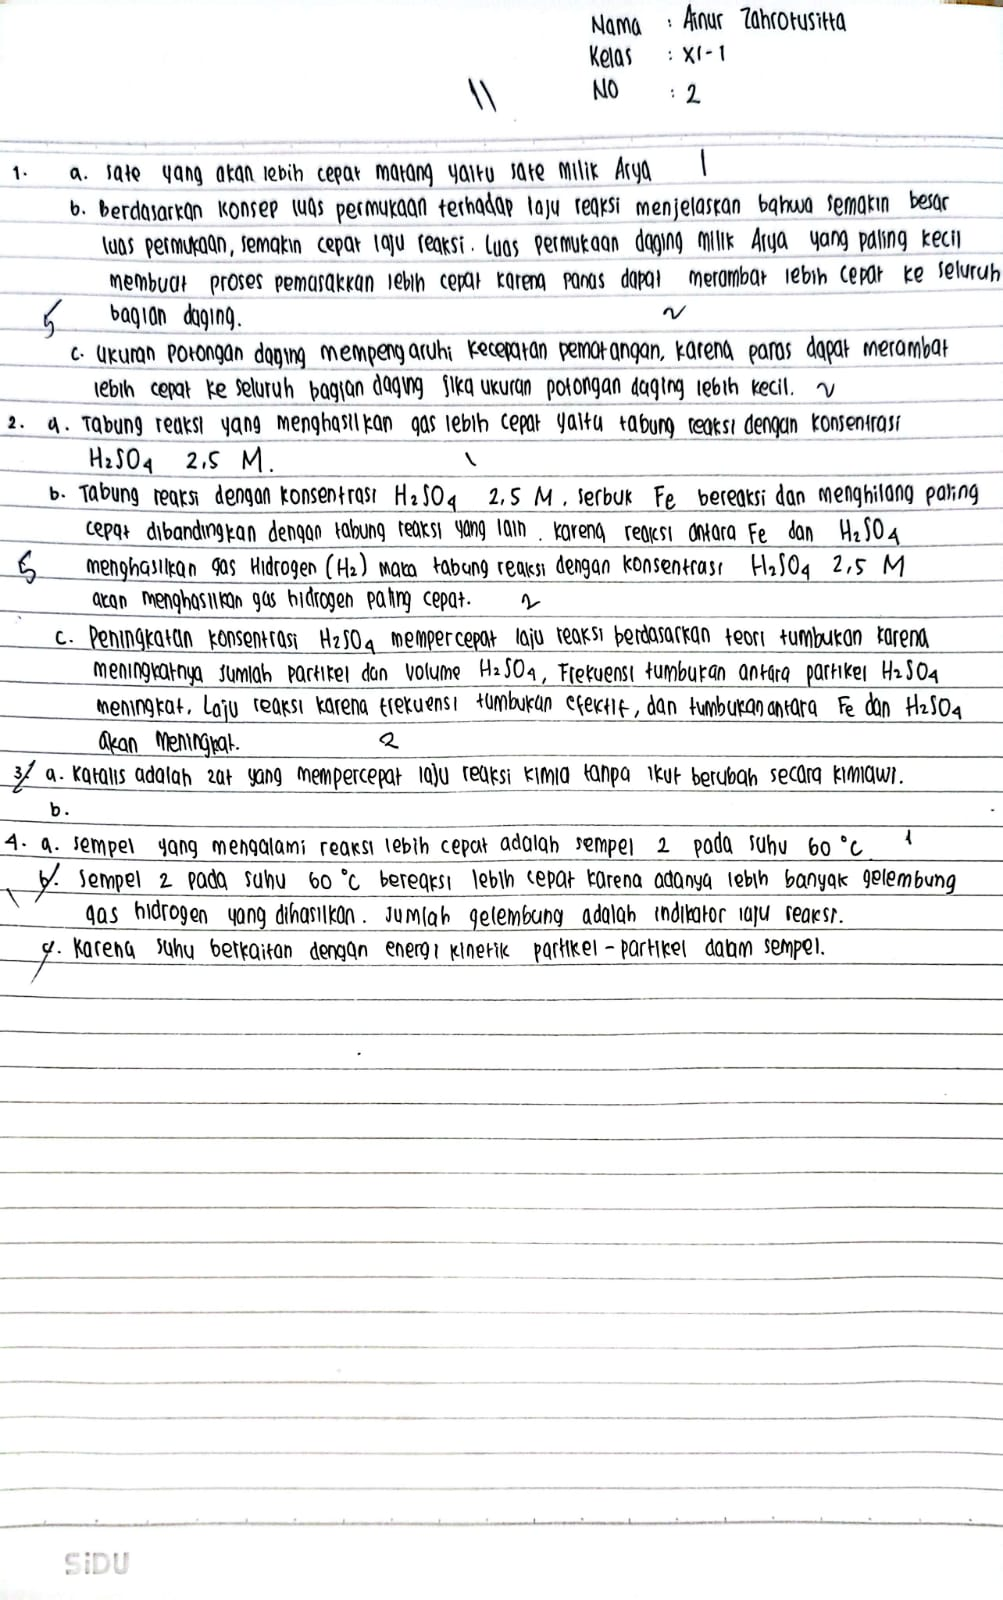 Nama : Ainur Zahrotusitta
Kelas : XI-1
NO : 2
11
1. a. sate yang akan lebih cepat matang yaitu sate milik Arya 1
b. berdasarkan konsep luas permukaan terhadap laju reaksi menjelaskan bahwa semakin besar
luas permukaan, semakin cepat laju reaksi. Luas permukaan daging milik Arya yang paling kecil
membuat proses pemasakkan lebih cepat karena panas dapat merambat lebih cepat ke seluruh
5 bagian daging. 2
c. ukuran potongan daging mempengaruhi kecepatan pematangan, karena panas dapat merambat
lebih cepat ke seluruh bagian daging jika ukuran potongan daging lebih kecil. 2
2. a. Tabung reaksi yang menghasilkan gas lebih cepat yaitu tabung reaksi dengan konsentrasi
H₂SO₄ 2,5 M. 1
b. Tabung reaksi dengan konsentrasi H₂SO₄ 2,5 M, serbuk Fe bereaksi dan menghilang paling
cepat dibandingkan dengan tabung reaksi yang lain. Karena reaksi antara Fe dan H₂SO₄
5 menghasilkan gas Hidrogen (H₂) maka tabung reaksi dengan konsentrasi H₂SO₄ 2,5 M
akan menghasilkan gas hidrogen paling cepat. 2
c. Peningkatan konsentrasi H₂SO₄ mempercepat laju reaksi berdasarkan teori tumbukan karena
meningkatnya jumlah partikel dan volume H₂SO₄, Frekuensi tumbukan antara partikel H₂SO₄
meningkat, Laju reaksi karena frekuensi tumbukan efektif, dan tumbukan antara Fe dan H₂SO₄
akan meningkat. 2
3. a. Katalis adalah zat yang mempercepat laju reaksi kimia tanpa ikut berubah secara kimiawi.
b.
4. a. sempel yang mengalami reaksi lebih cepat adalah sempel 2 pada suhu 60 °C 1
1 b. Sempel 2 pada suhu 60 °C bereaksi lebih cepat karena adanya lebih banyak gelembung
gas hidrogen yang dihasilkan. Jumlah gelembung adalah indikator laju reaksi.
c. Karena suhu berkaitan dengan energi kinetik partikel-partikel dalam sempel.
SiDU